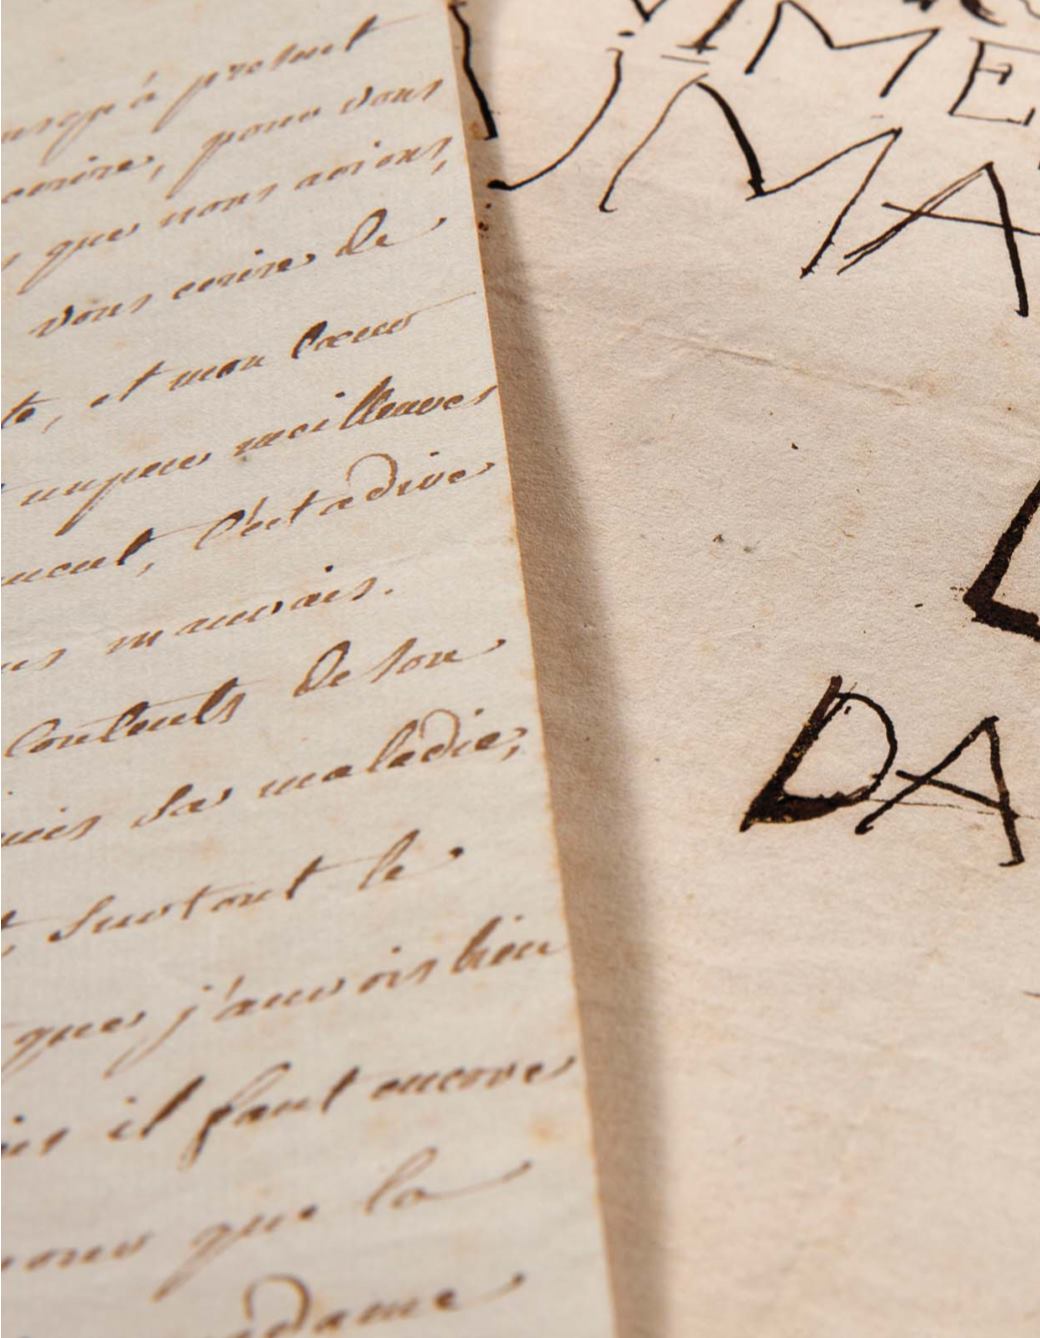 jusqu'à present
ecrire, pour vous
que nous avions,
vous ecrire de
te, et mon cœur
unpeu meilleures
ment, c'est adire
mauvais.
Contents de son
sa maladie,
surtout le
que j'aurois bien
il faut encore
que la
adame
IME
JMA
L
DA